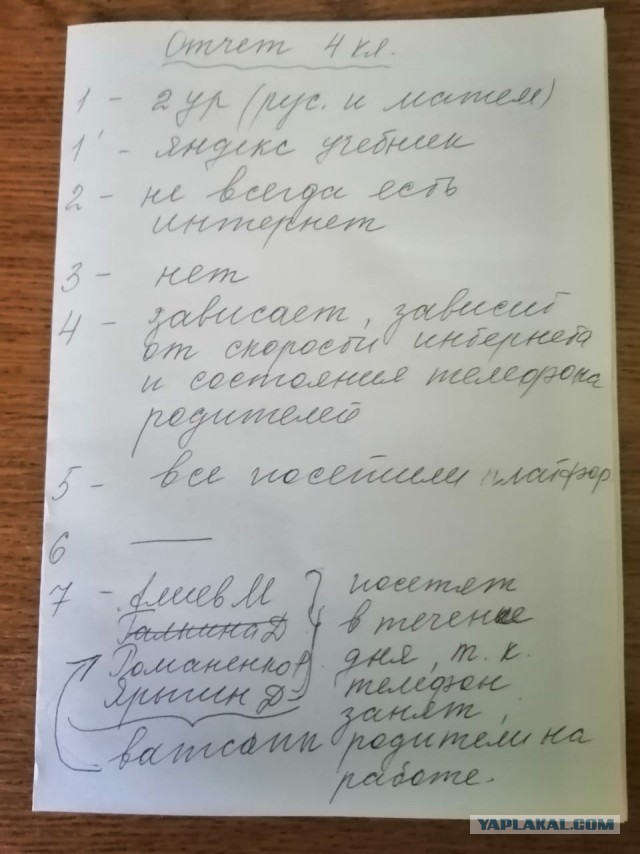 Отчет 4 кл.
1 - 2 ур (рус. и матем)
1' - яндекс учебник
2 - не всегда есть
интернет
3 - нет
4 - зависает, зависит
от скорости интернета
и состояния телефона
родителей
5 - все посетили платфор
6 —
7 - Алиев М посетят
Галкина Д в течение
Романенко Р. дня, т. к.
Ярыгин Д - телефон
занят,
ватсапп родители на
работе.
YAPLAKAL.COM